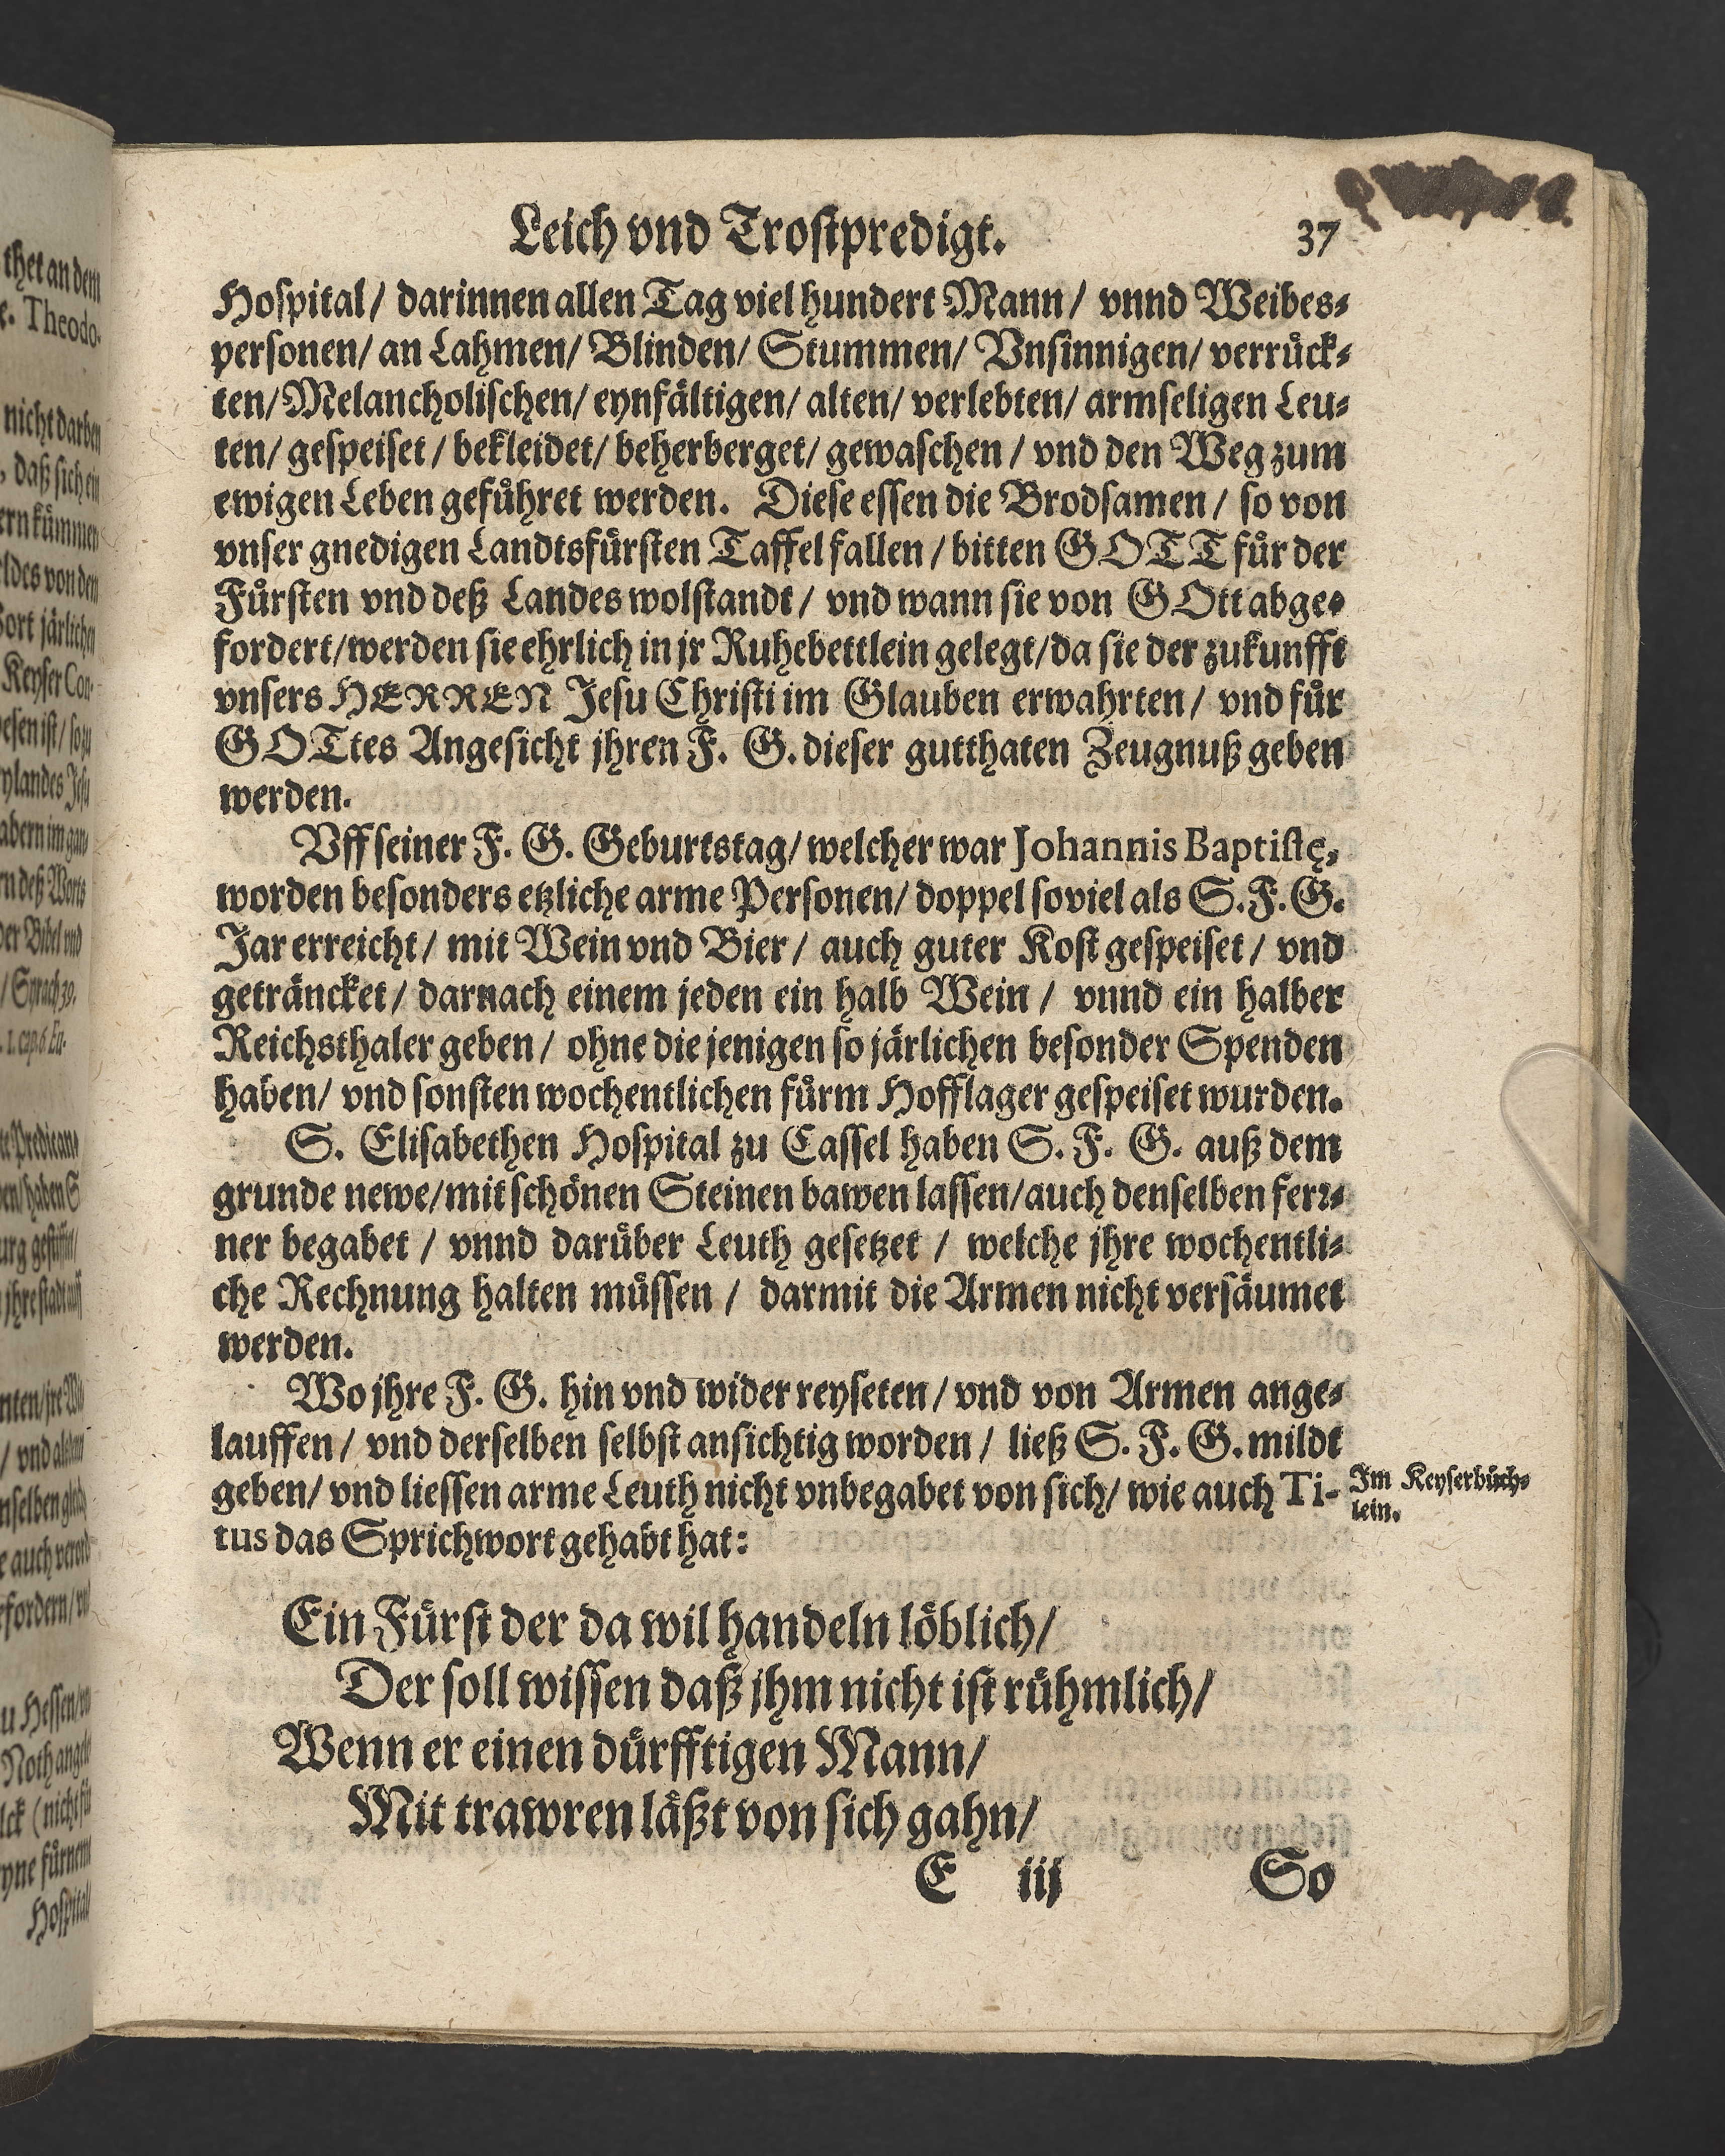 Leich vnd Trostpredigt. 37
Hospital/ darinnen allen Tag viel hundert Mann/ vnnd Weibes⸗
personen/ an Lahmen/ Blinden/ Stummen/ Vnsinnigen/ verruͤck⸗
ten/ Melancholischen/ eynfaͤltigen/ alten/ verlebten/ armseligen Leu⸗
ten/ gespeiset/ bekleidet/ beherberget/ gewaschen/ vnd den Weg zum
ewigen Leben gefuͤhret werden. Diese essen die Brodsamen/ so von
vnser gnedigen Landtsfuͤrsten Taffel fallen/ bitten GOTT fuͤr der
Fuͤrsten vnd deß Landes wolstandt/ vnd wann sie von GOtt abge⸗
fordert/ werden sie ehrlich in jr Ruhebettlein gelegt/ da sie der zukunfft
vnsers HERREN Jesu Christi im Glauben erwahrten/ vnd fuͤr
GOTtes Angesicht jhren F. G. dieser gutthaten Zeugnuß geben
werden.
Vff seiner F. G. Geburtstag/ welcher war Johannis Baptistę,
worden besonders etzliche arme Personen/ doppel soviel als S. F. G.
Jar erreicht/ mit Wein vnd Bier/ auch guter Kost gespeiset/ vnd
getraͤncket/ darnach einem jeden ein halb Wein/ vnnd ein halber
Reichsthaler geben/ ohne die jenigen so jaͤrlichen besonder Spenden
haben/ vnd sonsten wochentlichen fuͤrm Hofflager gespeiset wurden.
S. Elisabethen Hospital zu Cassel haben S. F. G. auß dem
grunde newe/ mit schoͤnen Steinen bawen lassen/ auch denselben ferꝛ⸗
ner begabet/ vnnd daruͤber Leuth gesetzet/ welche jhre wochentli⸗
che Rechnung halten muͤssen/ darmit die Armen nicht versaͤumet
werden.
Wo jhre F. G. hin vnd wider reyseten/ vnd von Armen ange⸗
lauffen/ vnd derselben selbst ansichtig worden/ ließ S. F. G. mildt
geben/ vnd liessen arme Leuth nicht vnbegabet von sich/ wie auch Ti-
tus das Sprichwort gehabt hat:
Im Keyserbuͤch⸗
lein.
Ein Fuͤrst der da wil handeln loͤblich/
Der soll wissen daß jhm nicht ist ruͤhmlich/
Wenn er einen duͤrfftigen Mann/
Mit trawren laͤßt von sich gahn/
E iij So